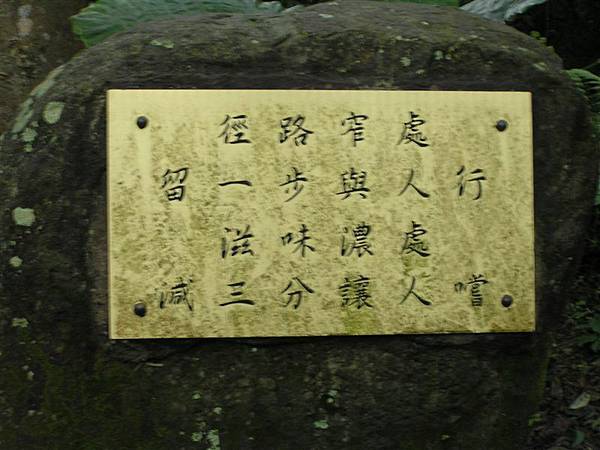 徑路窄處
留一步與人行
滋味濃處
減三分讓人嚐